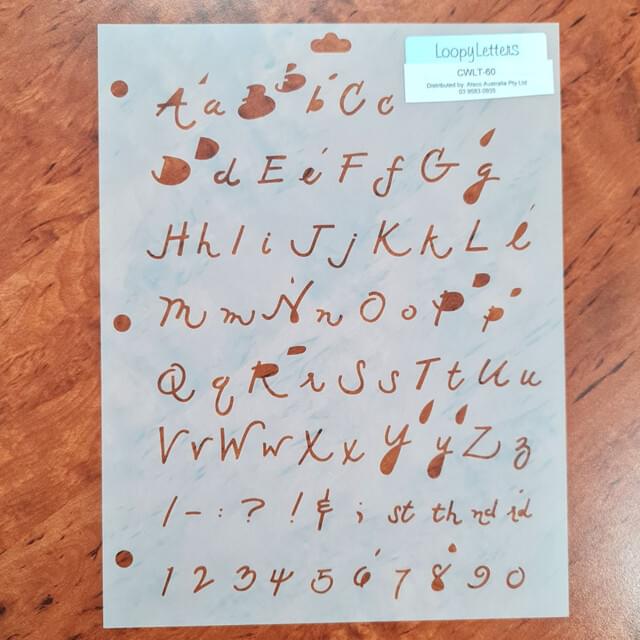 LoopyLetters
CWLT-60
Distributed by: Kreco Australia Pty Ltd
03 9583-0835
A a B b C c
D d E e F f G g
H h I i J j K k L l
M m N n O o P p
Q q R r S s T t U u
V v W w X x Y y Z z
/ - : ? ! & ; st th nd rd
1 2 3 4 5 6 7 8 9 0